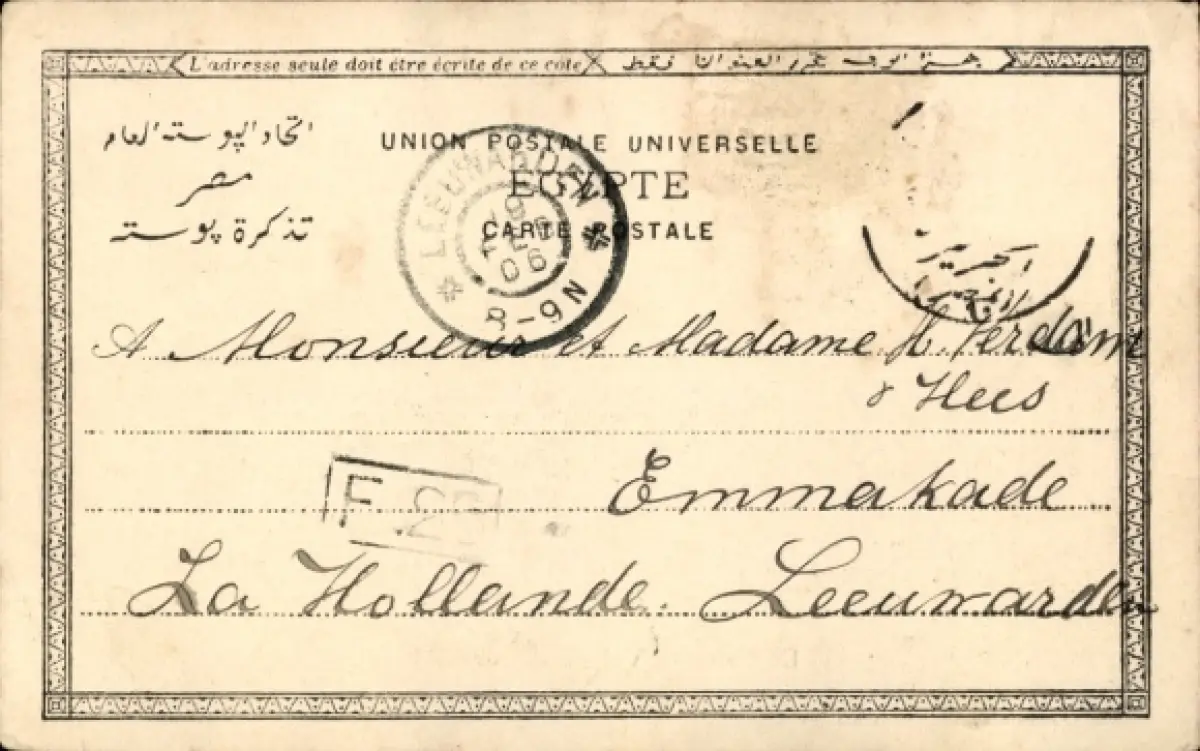 L'adresse seule doit être écrite de ce côté فقط العنوان
اتحاد البوسته العام
UNION POSTALE UNIVERSELLE
مصر
EGYPTE
تذكرة بوسته
CARTE POSTALE
LEEUWARDEN
19
06
8-9N
A Monsieur et Madame H. Verdam
Hees
F.
Emmakade
La Hollande. Leeuwarden